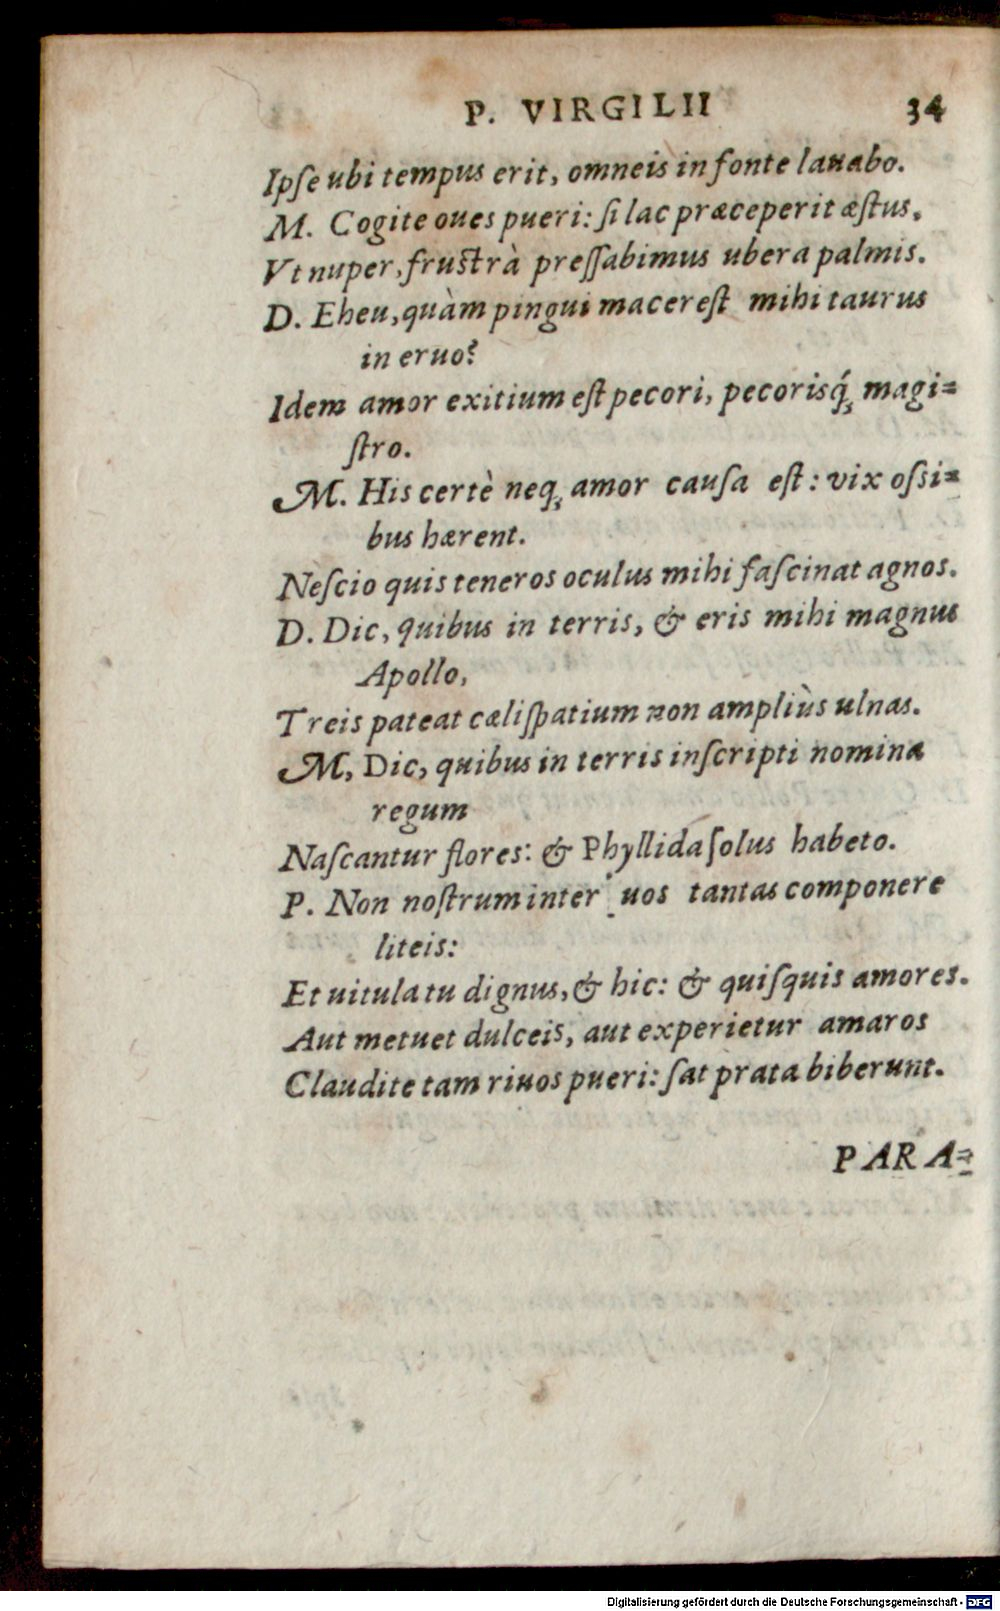 P. VIRGILII 34
Ipſe ubi tempus erit, omneis in fonte lauabo.
M. Cogite oues pueri: ſi lac præceperit æſtus.
Vt nuper, fruſtrà preſſabimus ubera palmis.
D. Eheu, quàm pingui macer eſt mihi taurus
in eruo?
Idem amor exitium eſt pecori, pecorisq́; magi=
ſtro.
M. His certè neq; amor cauſa eſt: vix oſsi=
bus hærent.
Neſcio quis teneros oculus mihi faſcinat agnos.
D. Dic, quibus in terris, & eris mihi magnus
Apollo,
Treis pateat cæli ſpatium non ampliùs ulnas.
M, Dic, quibus in terris inſcripti nomina
regum
Naſcantur flores: & Phyllida ſolus habeto.
P. Non noſtrum inter uos tantas componere
liteis:
Et uitula tu dignus, & hic: & quiſquis amores.
Aut metuet dulceis, aut experietur amaros
Claudite tam riuos pueri: ſat prata biberunt.
PARA=
Digitalisierung gefördert durch die Deutsche Forschungsgemeinschaft - DFG